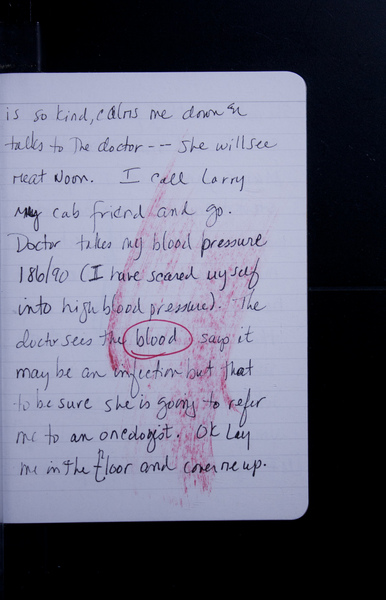 is so kind, calms me down &
talks to The doctor -- She will see
me at Noon. I call Larry
my cab friend and go.
Doctor takes my blood pressure
186/90 (I have scared myself
into high blood pressure). The
doctor sees the blood says it
may be an infection but that
to be sure she is going to refer
me to an oncologist. OK Lay
me in the floor and cover me up.